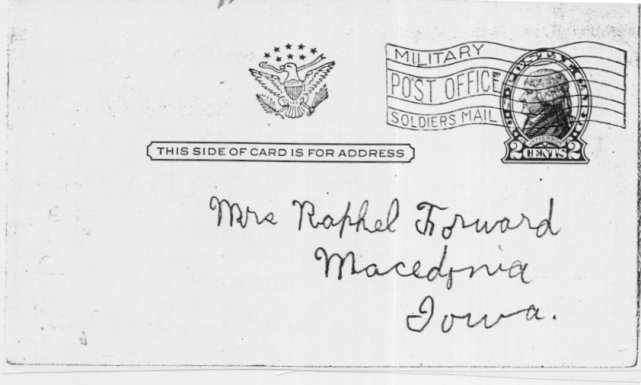 MILITARY
POST OFFICE
SOLDIERS MAIL
THIS SIDE OF CARD IS FOR ADDRESS
2 CENTS 2
Mrs Raphel Forward
Macedonia
Iowa.